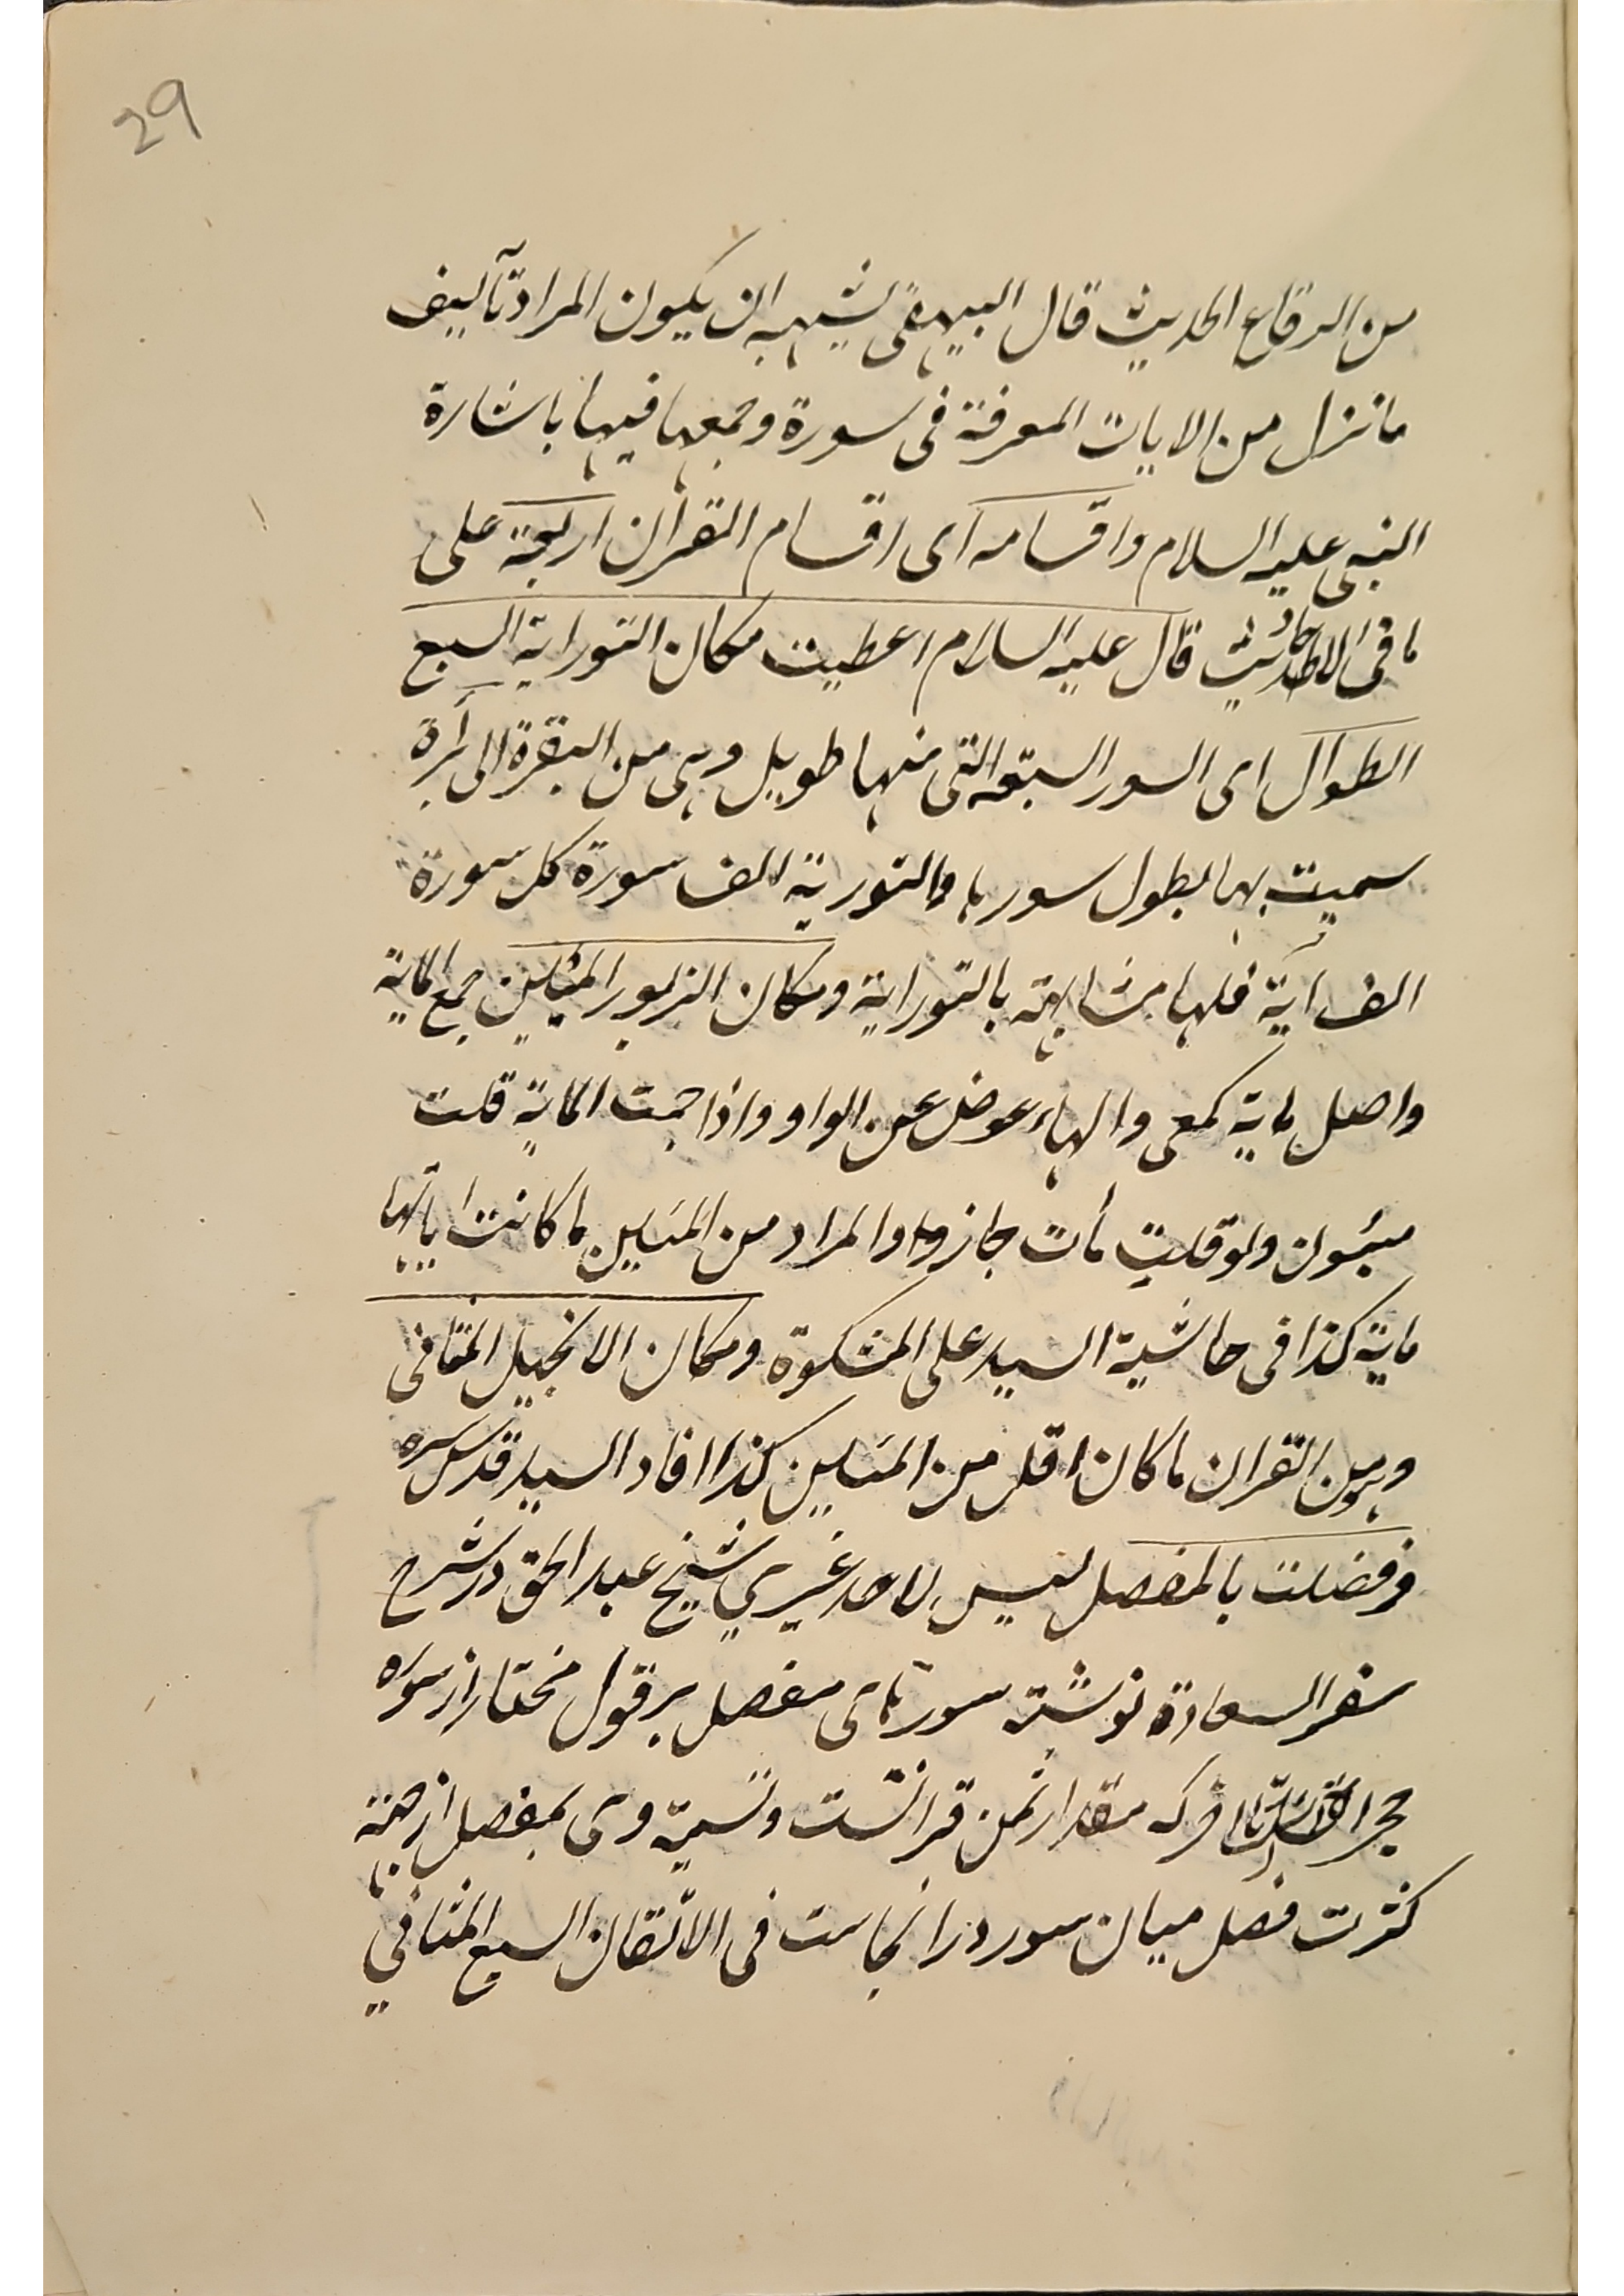 29
من الرقاع الحديث قال البيهقى يشبه ان يكون المراد تآليف
ما نزل من الايات المعرفة فى سورة وجمعها فيها باشارة
النبى عليه السلام واقسامه اى اقسام القرآن اربعة على
ما فى الاحاديث قال عليه السلام اعطيت مكان التوراية السبع
الطوال اى السور السبعة التى منها طويل وهى من البقرة الى برآءة
سميت بها لطول سورها والتورية الف سورة كل سورة
الف آية فلها مشابهة بالتوراية ومكان الزبور المئين جمع الماية
واصل ماية كمعى والهاء عوض عن الواو واذا جمعت الماية قلت
مئون ولو قلت مأت جاز والمراد من المئين ما كانت اياتها
ماية كذا فى حاشية السيد على المشكوة ومكان الانجيل المثانى
وهو من القران ما كان اقل من المئين كذا افاد السيد قدس سره
وفضلت بالمفصل ليس لاحد غيري شيخ عبد الحق در شرح
سفر السعادة نوشته سورتهاى مفصل بر قول مختار از سوره
حجرات تا آخر كه مقدار ثمن قرانست وتسميه وى بمفصل از جهة
كثرت فصل ميان سور در انجاست فى الاتقان السبع المثاني